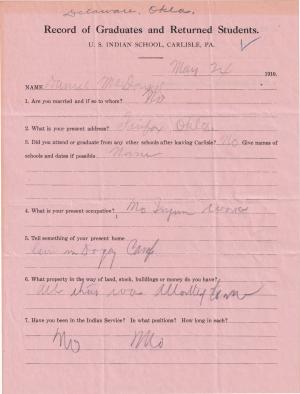 Delaware, Okla.
Record of Graduates and Returned Students.
U. S. INDIAN SCHOOL, CARLISLE, PA.
May 24 1910.
NAME
1. Are you married and if so to whom? No
2. What is your present address? Okla.
3. Did you attend or graduate from any other schools after leaving Carlisle? No Give names of
schools and dates if possible None
4. What is your present occupation?
5. Tell something of your present home
Camp
6. What property in the way of land, stock, buildings or money do you have?
All was
7. Have you been in the Indian Service? In what positions? How long in each?
No No